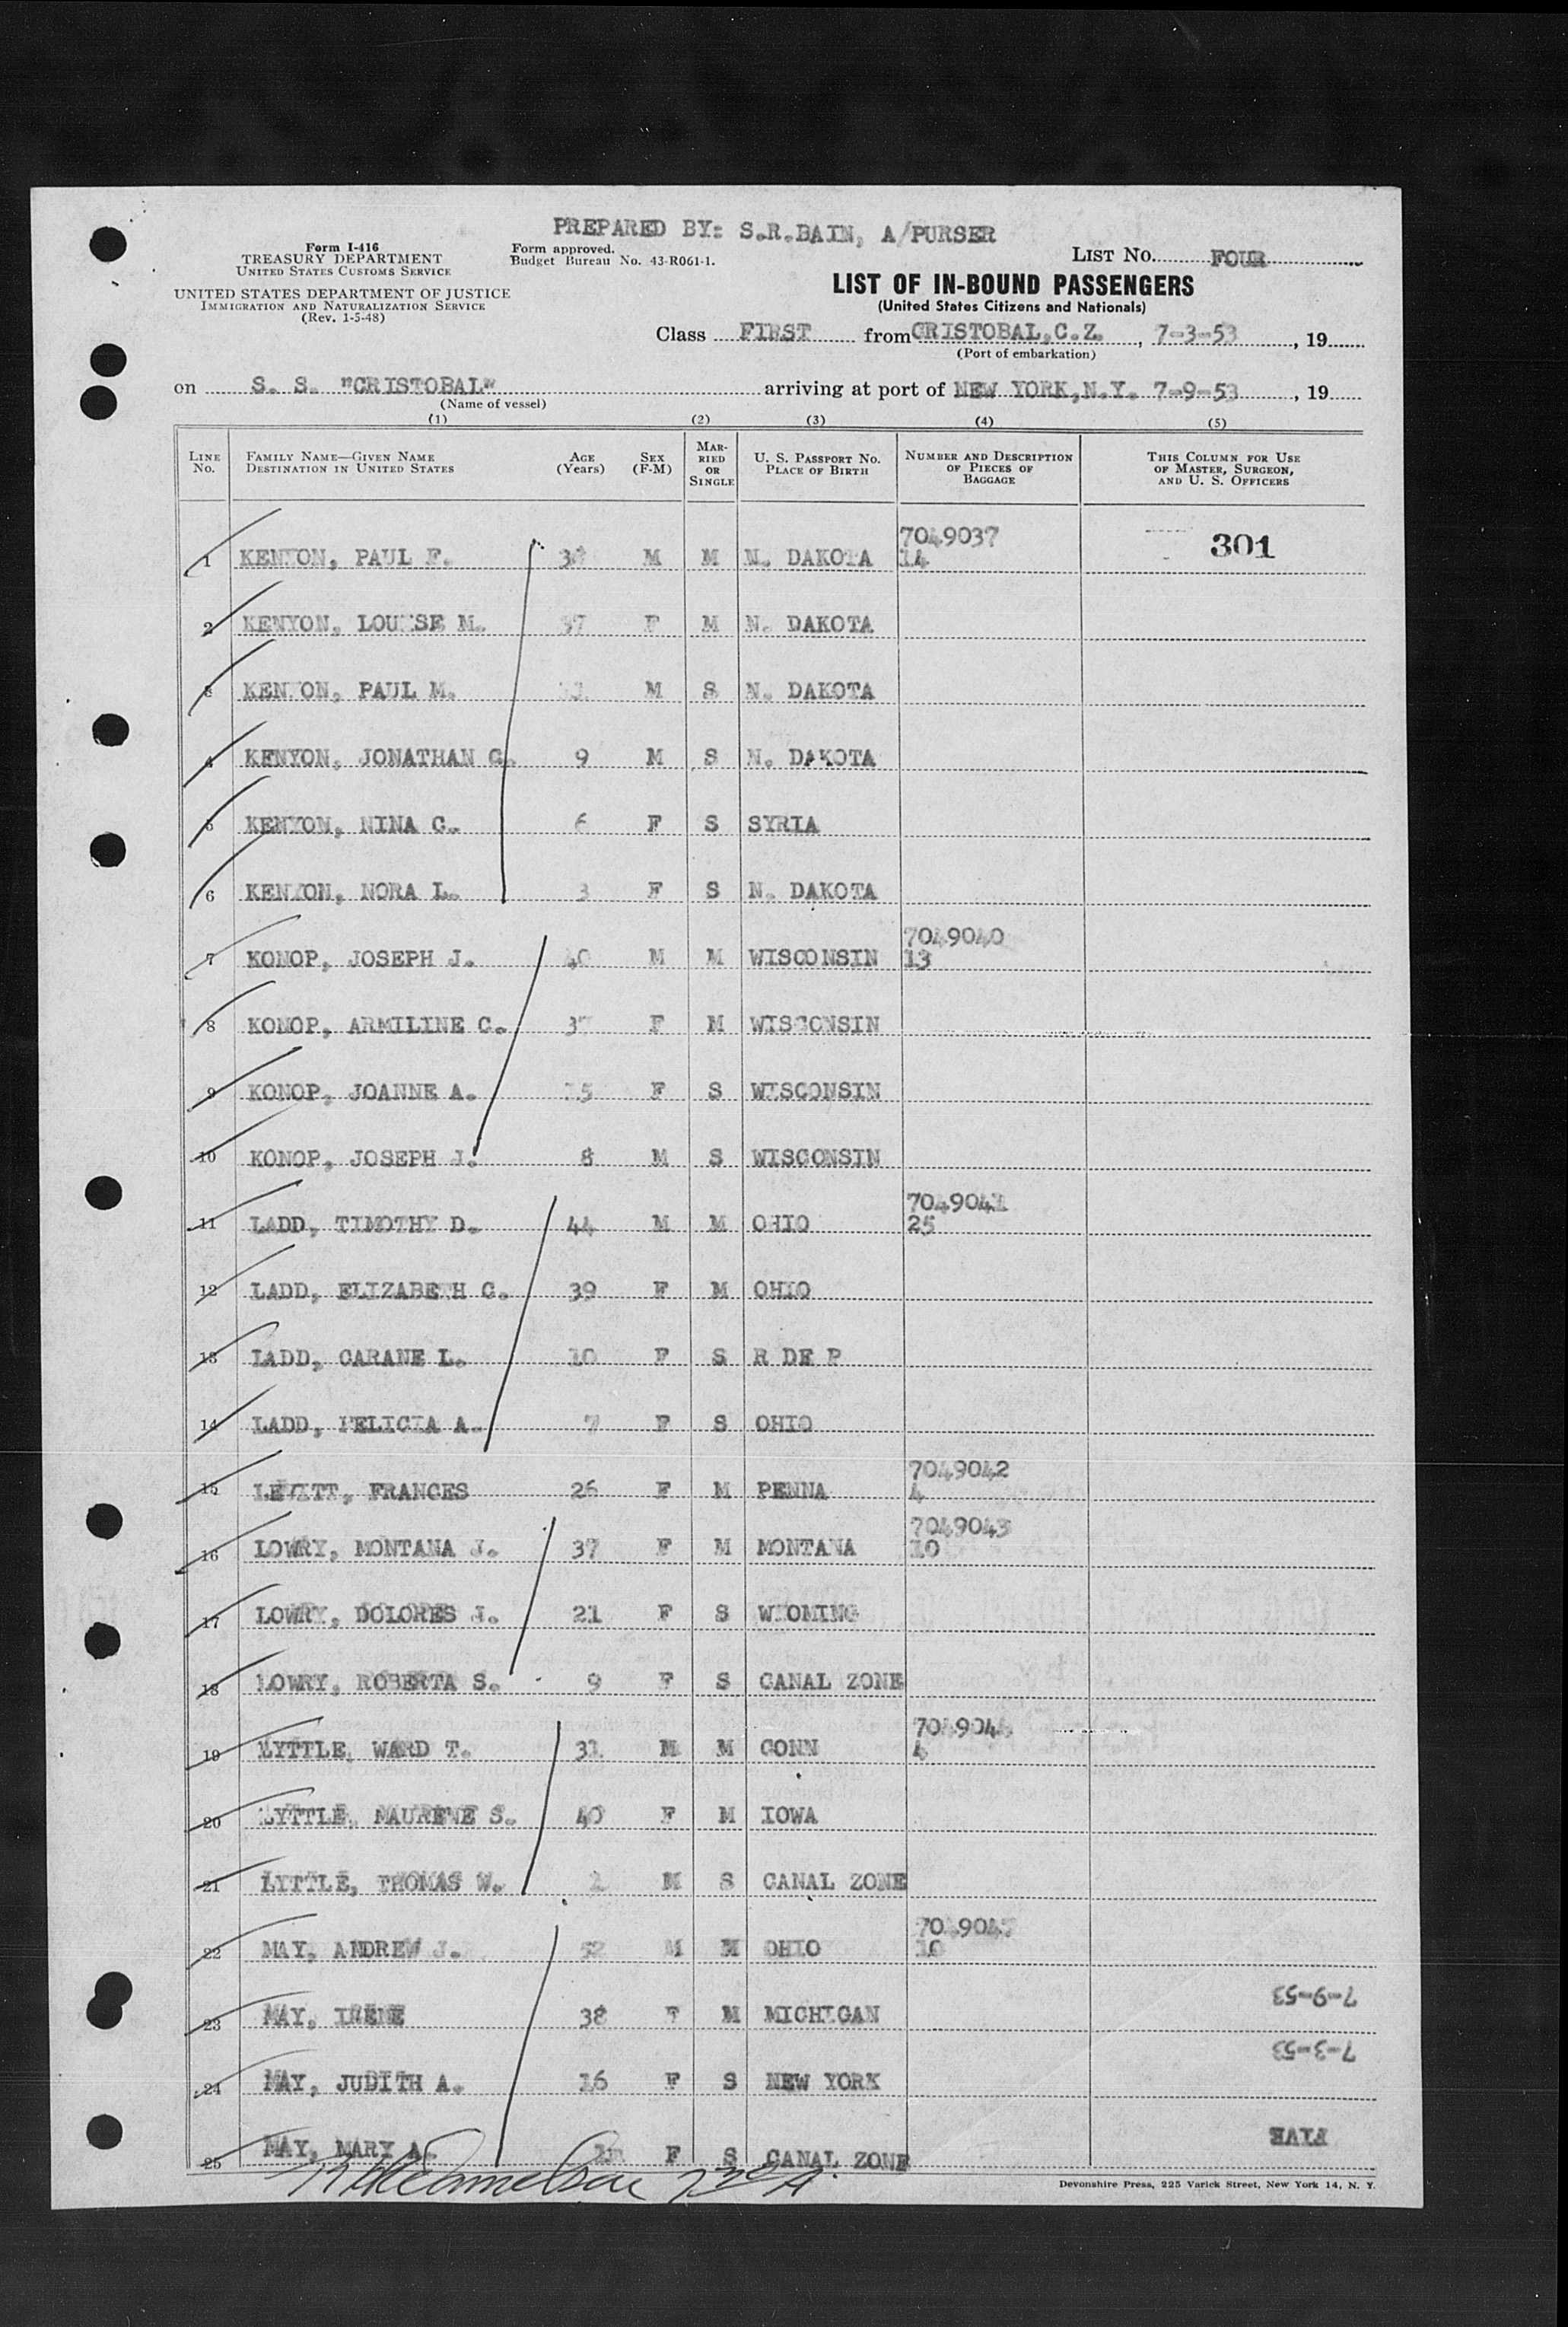 PREPARED BY: S.R.BAIN, A/PURSER
Form I-416
TREASURY DEPARTMENT
UNITED STATES CUSTOMS SERVICE
UNITED STATES DEPARTMENT OF JUSTICE
IMMIGRATION AND NATURALIZATION SERVICE
(Rev. 1-5-48)
Form approved.
Budget Bureau No. 43-R061-1.
LIST No. FOUR
LIST OF IN-BOUND PASSENGERS
(United States Citizens and Nationals)
Class FIRST from CRISTOBAL,C.Z. , 7-3-53 , 19
(Port of embarkation)
on S. S. "CRISTOBAL" arriving at port of NEW YORK,N.Y. 7-9-53 , 19
(Name of vessel)
(1) (2) (3) (4) (5)
LINE No. FAMILY NAME—GIVEN NAME DESTINATION IN UNITED STATES AGE (Years) SEX (F-M) MARRIED OR SINGLE U. S. PASSPORT No. PLACE OF BIRTH NUMBER AND DESCRIPTION OF PIECES OF BAGGAGE THIS COLUMN FOR USE OF MASTER, SURGEON, AND U. S. OFFICERS
7049037
1 KENYON, PAUL F. M M N. DAKOTA 14 301
2 KENYON, LOUISE M. 37 F M N. DAKOTA
3 KENYON, PAUL M. M S N. DAKOTA
4 KENYON, JONATHAN G. 9 M S N. DAKOTA
5 KENYON, NINA C. 6 F S SYRIA
6 KENYON, NORA L. 3 F S N. DAKOTA
7049040
7 KONOP, JOSEPH J. 40 M M WISCONSIN 13
8 KONOP, ARMILINE C. 37 F M WISCONSIN
9 KONOP, JOANNE A. 15 F S WISCONSIN
10 KONOP, JOSEPH J. 8 M S WISCONSIN
7049041
11 LADD, TIMOTHY D. 44 M M OHIO 25
12 LADD, ELIZABETH C. 39 F M OHIO
13 LADD, CARANE L. 10 F S R DE P
14 LADD, FELICIA A. 7 F S OHIO
7049042
15 LEVITT, FRANCES 26 F M PENNA 4
7049043
16 LOWRY, MONTANA J. 37 F M MONTANA 10
17 LOWRY, DOLORES J. 21 F S WYOMING
18 LOWRY, ROBERTA S. 9 F S CANAL ZONE
7049044
19 LYTTLE, WARD T. 31 M M CONN 4
20 LYTTLE, MAURENE S. 40 F M IOWA
21 LYTTLE, THOMAS W. 2 M S CANAL ZONE
22 MAY, ANDREW J. 52 M M OHIO 10
7-9-53
23 MAY, IRENE 38 F M MICHIGAN
7-3-53
24 MAY, JUDITH A. 16 F S NEW YORK
FIVE
25 MAY, MARY A. F S CANAL ZONE
Devonshire Press, 225 Varick Street, New York 14, N. Y.